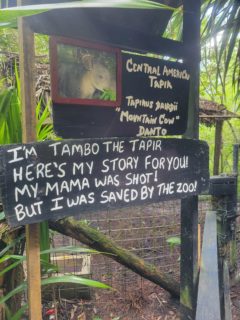 CENTRAL AMERICAN
TAPIR
TAPIRUS BAIRDII
"MOUNTAIN COW"
DANTO
I'M TAMBO THE TAPIR
HERE'S MY STORY FOR YOU!
MY MAMA WAS SHOT!
BUT I WAS SAVED BY THE ZOO!